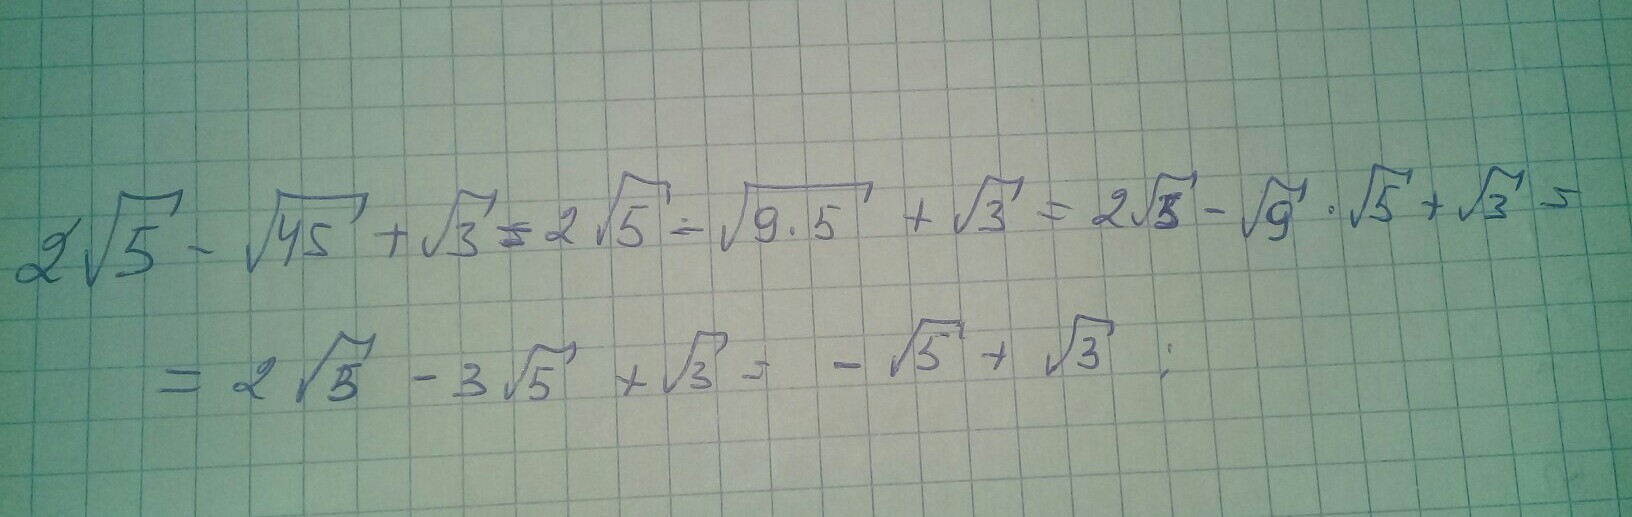 2√5 - √45 + √3 = 2√5 - √9·5 + √3 = 2√5 - √9 · √5 + √3 =
= 2√5 - 3√5 + √3 = - √5 + √3 ;